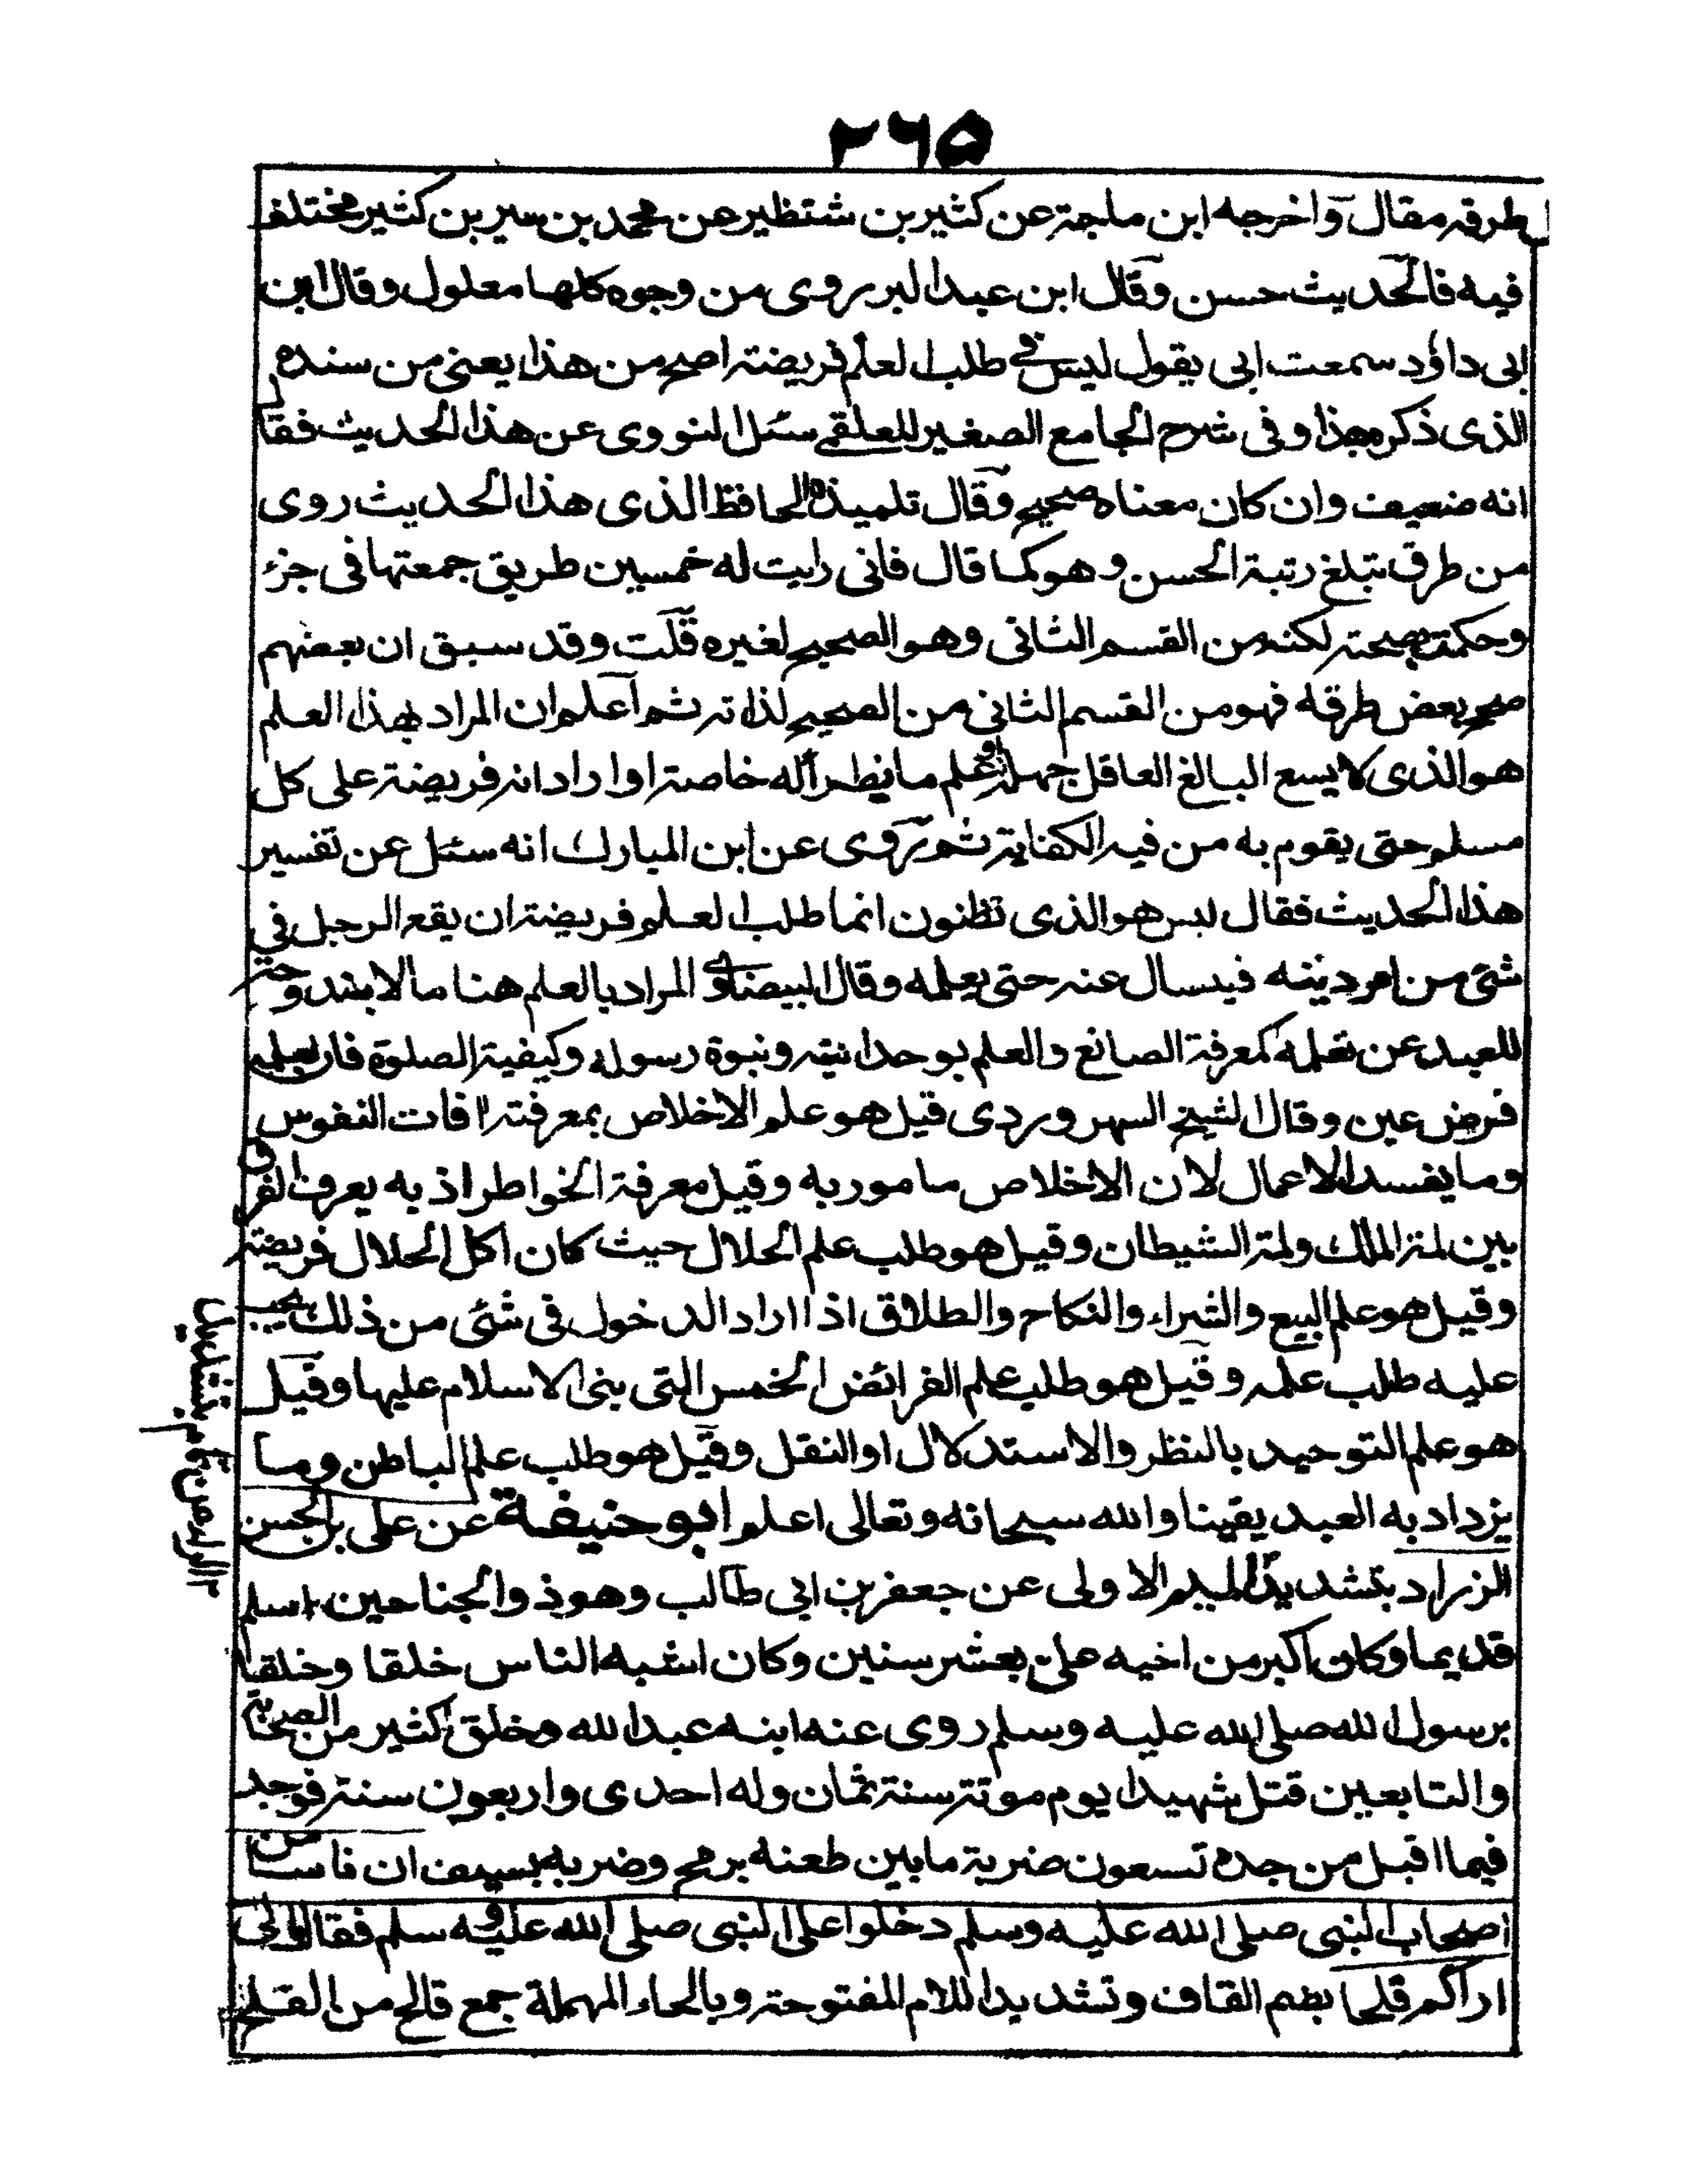 ٢٦٥
طرقه مقال واخرجه ابن ماجة عن كثير بن شنظير عن محمد بن سيرين كثير مختلف
فيه فالحديث حسن وقال ابن عبدالبر روى من وجوه كلها معلول وقال ابن
ابى داؤد سمعت ابى يقول ليس فى طلب العلم فريضة اصح من هذا يعنى من سنده
الذى ذكره هذا وفى شرح الجامع الصغير للعلقمى سئل النووى عن هذا الحديث فقال
انه ضعيف وان كان معناه صحيح وقال تلميذه الحافظ الذى هذا الحديث روى
من طرق تبلغ رتبة الحسن وهو كما قال فانى رايت له خمسين طريق جمعتها فى جزء
وحكمت بصحته لكنه من القسم الثانى وهو الصحيح لغيره قلت وقد سبق ان بعضهم
صحح بعض طرقه فهو من القسم الثانى من الصحيح لذاته ثم اعلم ان المراد بهذا العلم
هو الذى لا يسع البالغ العاقل جهله او علم ما يطرأ له خاصة او اراد انه فريضة على كل
مسلم حتى يقوم به من فيه الكفاية ثم روى عن ابن المبارك انه سئل عن تفسير
هذا الحديث فقال ليس هو الذى تظنون انما طلب العلم فريضة ان يقع الرجل فى
شئ من امر دينه فيسال عنه حتى يعلمه وقال البيضاوى المراد بالعلم هنا ما لا مندوحة
للعبد عن تعلمه كمعرفة الصانع والعلم بوحدانيته ونبوة رسوله وكيفية الصلوة فان تعلمه
فرض عين وقال الشيخ السهروردى قيل هو علم الاخلاص بمعرفته افات النفوس
وما يفسد الاعمال لان الاخلاص مامور به وقيل معرفة الخواطر اذ به يعرف الفرق
بين لمة الملك ولمة الشيطان وقيل هو طلب علم الحلال حيث كان اكل الحلال فريضة
وقيل هو علم البيع والشراء والنكاح والطلاق اذا اراد الدخول فى شئ من ذلك يجب
عليه طلب علمه وقيل هو طلب علم الفرائض الخمس التى بنى الاسلام عليها وقيل
هو علم التوحيد بالنظر والاستدلال او النقل وقيل هو طلب علم الباطن وما
يزداد به العبد يقينا والله سبحانه وتعالى اعلم ابو حنيفة عن على بن الحسن
الزراد بتشديد الميم الاولى عن جعفر بن ابى طالب وهو ذو الجناحين اسلم
قديما وكان اكبر من اخيه على بعشر سنين وكان اشبه الناس خلقا وخلقا
برسول الله صلى الله عليه وسلم روى عنه ابنه عبد الله وخلق كثير من الصحابة
والتابعين قتل شهيدا يوم موتة سنة ثمان وله احدى واربعون سنة فوجد
فيما اقبل من جده تسعون ضربة ما بين طعنه برمح وضربه بسيف ان ناسا من
اصحاب النبى صلى الله عليه وسلم دخلوا على النبى صلى الله عليه وسلم فقال ما لى
اراكم قلحا بضم القاف وتشديد اللام المفتوحة وبالحاء المهملة جمع قالح من القلح